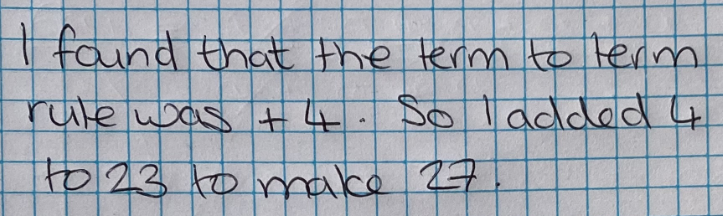 I found that the term to term
rule was + 4. So I added 4
to 23 to make 27.